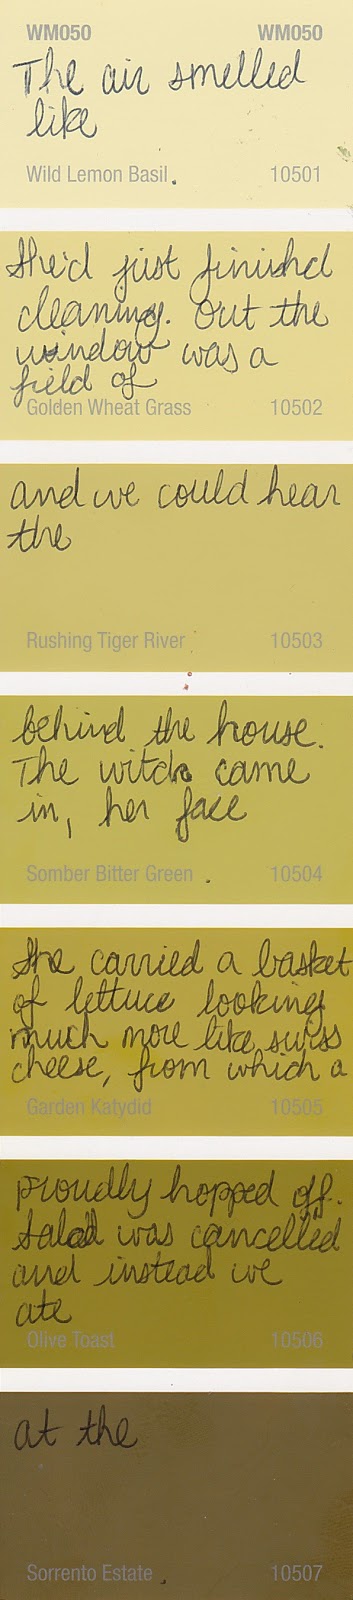 WM050 WM050
The air smelled
like
Wild Lemon Basil. 10501
She'd just finishd
cleaning. Out the
window was a
field of
Golden Wheat Grass 10502
and we could hear
the
Rushing Tiger River 10503
behind the house.
The witch came
in, her face
Somber Bitter Green . 10504
She carried a basket
of lettuce looking
much more like swiss
cheese, from which a
Garden Katydid 10505
proudly hopped off.
Salad was cancelled
and instead we
ate
Olive Toast 10506
at the
Sorrento Estate . 10507